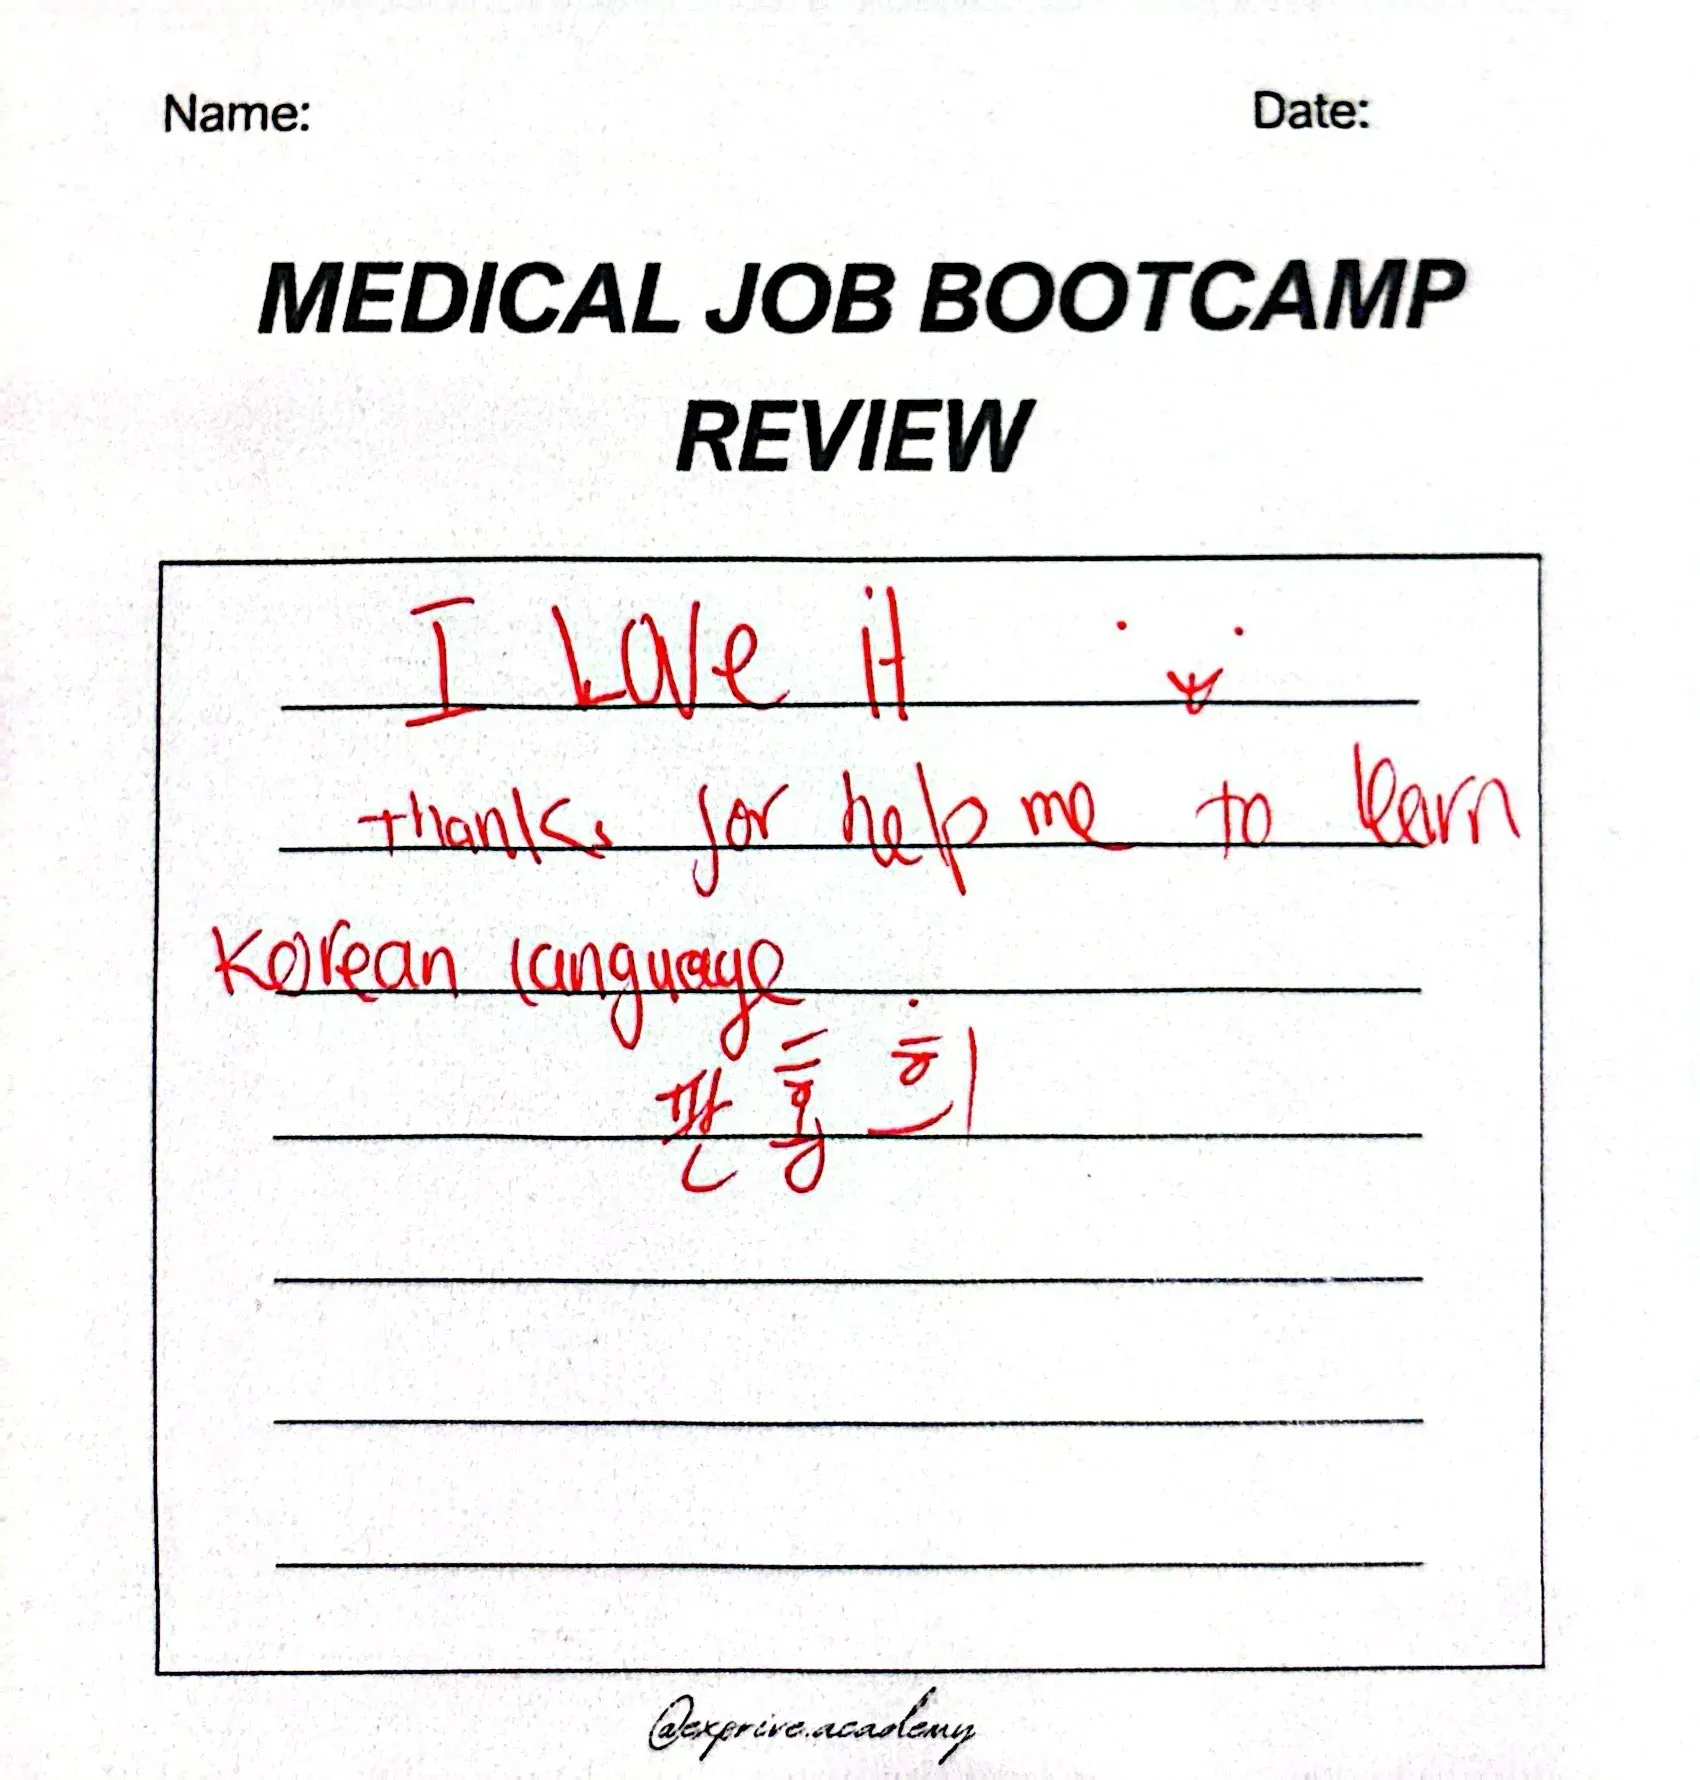 Name: Date:
MEDICAL JOB BOOTCAMP
REVIEW
I Love it
thanks for help me to learn
Korean language
@exprive.academy